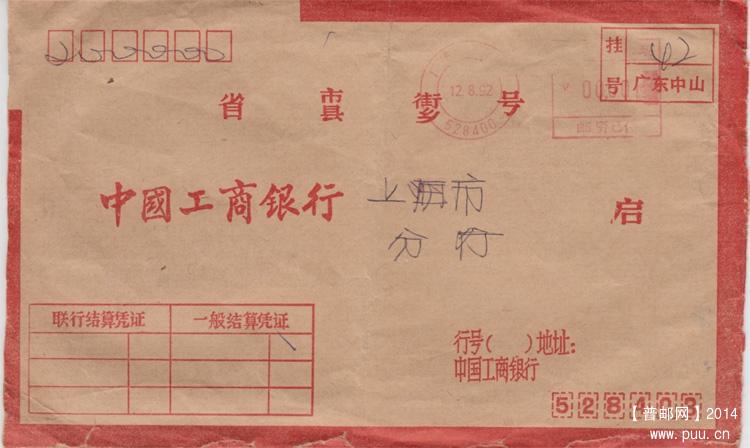 200000
挂号
42
广东中山
12.8.92
528400
省 市县 街乡 号
中國工商银行 上海市
分行
启
联行结算凭证 一般结算凭证
行号( )地址:
中国工商银行
528403
【普邮网】2014
www.puu.cn